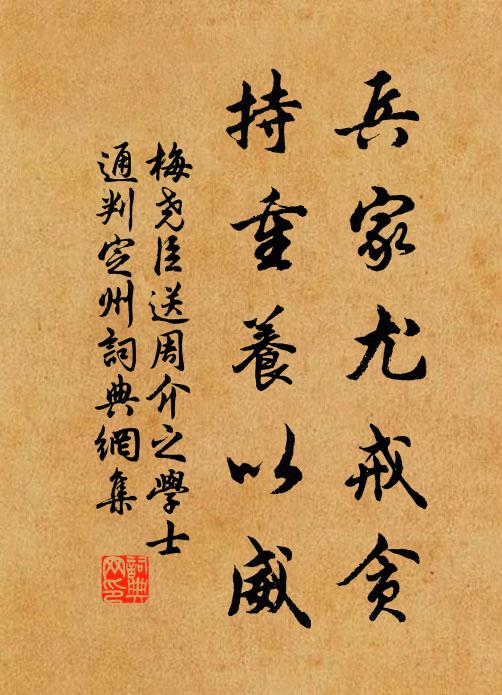 兵家尤戒貪
持重養以威
梅堯臣送周介之學士
通判定州詞典網集
詞典
网印